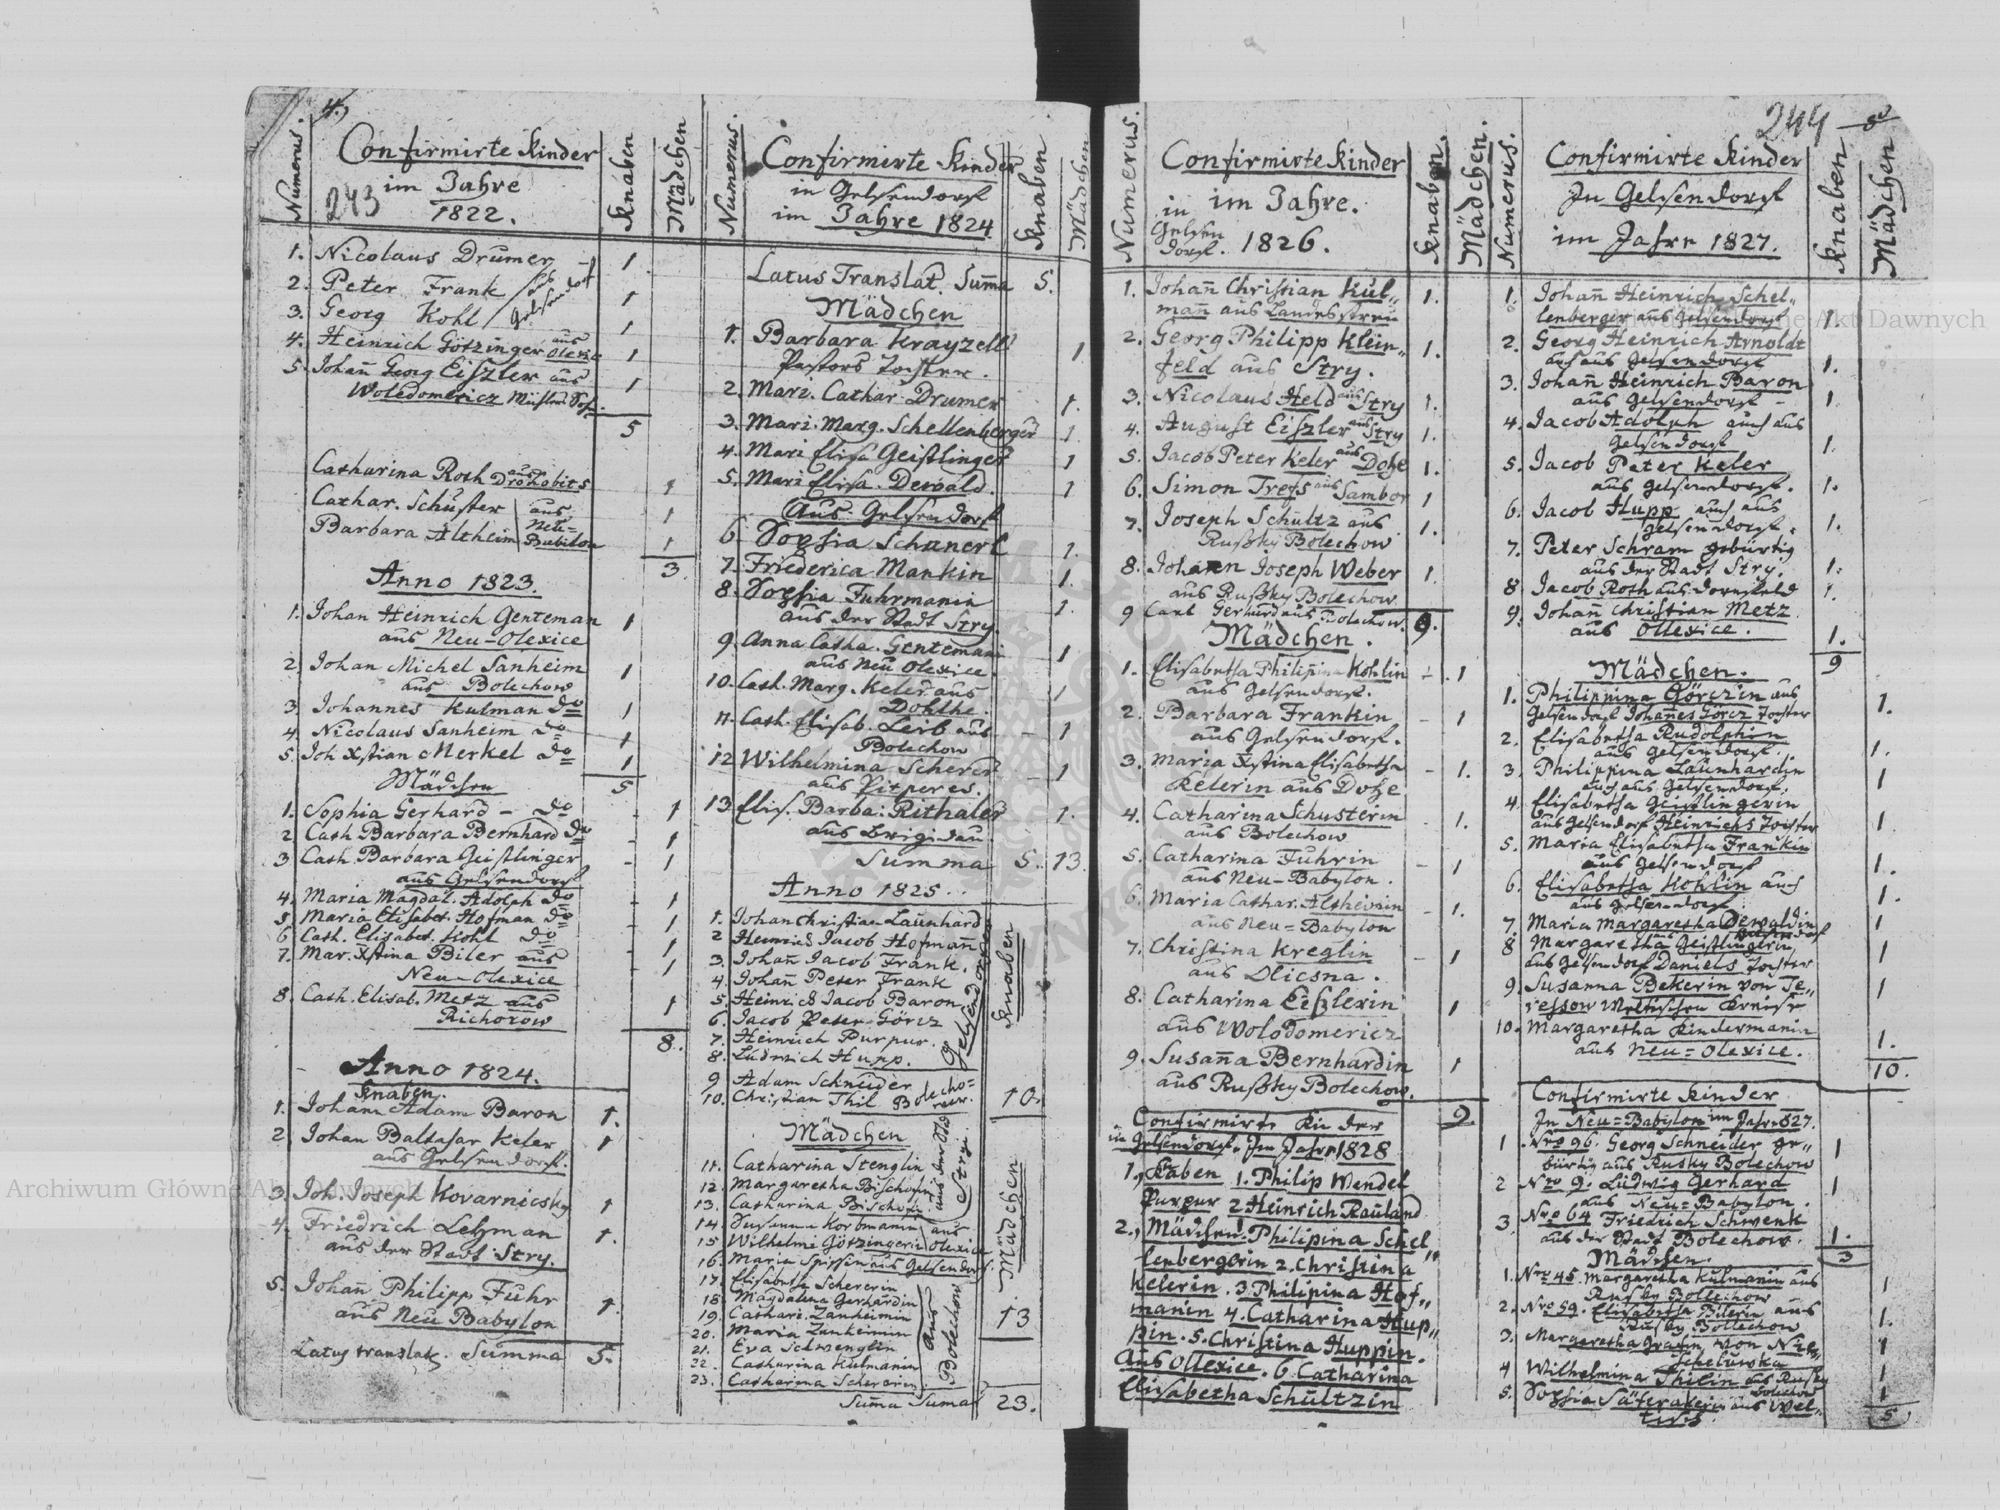 4.)
Numerus.
Confirmirte Kinder
im Jahre
243
1822.
Knaben
Mädchen
1. Nicolaus Drumer
2. Peter Frank
3. Georg Kohl
aus Gelsendorf
4. Heinrich Götzinger aus Olexice 1
5. Johan̄ Georg Eiszler aus 1
Wolodomericz
5
Catharina Roth aus Drohobits 1
Cathar. Schuster aus 1
Barbara Altheim Neu=Babilon 1
3.
Anno 1823.
1. Johan Heinrich Genteman 1
aus Neu-Olexice
2. Johan Michel Sanheim 1
aus Bolechow
3. Johannes Kulman do 1
4. Nicolaus Sanheim do 1
5. Joh Xstian Merkel do 1
Mädchen 5
1. Sophia Gerhard - do - 1
2 Cath Barbara Bernhard do - 1
3 Cath. Barbara Geistlinger - 1
aus Gelsendorf
4. Maria Magdal. Adolph do - 1
5. Maria Elisabet. Hofman do - 1
6 Cath. Elisabet. Kohl do - 1
7. Mar. Xstina Biler aus - 1
Neu-Olexice
8. Cath. Elisab. Metz aus 1
Richorow
8.
Anno 1824.
Knaben.
1. Johann Adam Baron 1.
2. Johan Baltasar Keler 1
aus Gelsendorf.
3. Joh. Joseph Kovarnicsky 1
4. Friedrich Lehman 1.
aus der Stadt Stry.
5. Johan̄ Philipp Fuhr 1.
aus Neu Babylon
Latus translat. Summa 5.
Numerus.
Confirmirte Kinder
in Gelsendorf
im Jahre 1824
Knaben
Mädchen
Latus Translat. Sum̄a 5.
Mädchen
1. Barbara Krayzell 1
Pastors Tochter.
2. Mari. Cathar. Drumer 1.
3. Mari. Marg. Schellenberger 1
4. Mari Elisa Geistlinger 1
5. Mari Elisa. Dewald. 1
Aus Gelsendorf
6. Sophia Schanerl 1.
7. Friederica Mankin 1.
8. Sophia Fuhrmanin 1.
aus der Stadt Stry.
9. Anna Catha. Gentemani 1
aus Neu Olexice.
10. Cath. Marg. Keler aus 1
Dohthe.
11. Cath. Elisab. Leib aus - 1
Bolechow
12 Wilhelmina Scherer - 1
aus Pitperes.
13. Elis. Barba: Rithaler 1.
aus Brigidau
Summa 5. 13.
Anno 1825.
1. Johan Christian Launhard
2 Heinrich Jacob Hofman
3. Johan̄ Jacob Frank.
4. Johan̄ Peter Frank
5. Heinrich Jacob Baron
6. Jacob Peter Görcz
7. Heinrich Purpur.
8. Ludwich Hupp.
Knaben
9 Adam Schneider
10. Christian Thil
10.
Mädchen
11. Catharina Stenglin
12. Margaretha Bischofin
13. Catharina Bischofin
aus der Stadt Stryi.
14. Susanna Korbmanin aus
15 Wilhelmi Götzingerin Olexice
16. Maria aus Gelsendorf.
17. Elisabeth Schererin
18. Magdalena Gerhardin
19. Cathari. Zanheimin
20. Maria Zanheimin
21. Eva Schwenglin
22. Catharina Kulmanin
23. Catharina Schererin
Aus Bolechow
Mädchen
13
Sum̄a Sumar 23.
Numerus.
Confirmirte Kinder
im Jahre.
in Gelsendorf. 1826.
Knaben.
Mädchen.
1. Johan̄ Christian Kul= 1.
man̄ aus Landestreu
2. Georg Philipp Klein= 1.
feld aus Stry.
3. Nicolaus Held aus Stry 1.
4. August Eiszler aus Stry 1.
5. Jacob Peter Keler aus Dohe 1.
6. Simon Trefs aus Sambor 1
7. Joseph Schultz aus 1.
Rußky Bolechow
8. Johann Joseph Weber 1.
aus Rußky Bolechow
9 Carl Gerhard aus Bolechow. 9.
Mädchen.
1. Elisabetha Philippina Kohlin - 1
aus Gelsendorf.
2. Barbara Frankin - 1
aus Gelsendorf.
3. Maria Xstina Elisabetha - 1.
Kelerin aus Dohe
4. Catharina Schusterin - 1.
aus Bolechow
5. Catharina Fuhrin - 1
aus Neu-Babylon.
6. Maria Cathar. Altheimin - 1.
aus Neu=Babylon
7. Christina Kreglin - 1
aus Olicsna.
8. Catharina Eißlerin 1
aus Wolodomericz
9. Susan̄a Bernhardin 1
aus Rußky Bolechow.
9.
Confirmirte Kinder
in Gelsendorf. Im Jahr 1828
1, Knaben 1. Philip Wendel
Purpur 2 Heinrich Rauland
2., Mädchen. Philipina Schel
lenbergerin 2. Christina
Kelerin. 3 Philipina Hof=
manin 4. Catharina Hup=
pin. 5. Christina Huppin.
Aus Ollexice. 6. Catharina
Elisabetha Schultzin
244
Numerus.
Confirmirte Kinder
In Gelsendorf
im Jahre 1827.
Knaben
Mädchen
1. Johan̄ Heinrich Schel=
lenberger aus Gelsendorf 1.
2. Georg Heinrich Arnoldt
auch aus Gelsendorf 1.
3. Johan̄ Heinrich Baron
aus Gelsendorf - 1.
4. Jacob Adolph auch aus
Gelsendorf 1.
5. Jacob Peter Keler
aus Gelsendorf. 1.
6. Jacob Hupp auch aus
Gelsendorf. 1.
7. Peter Schram gebürtig
aus der Stadt Stry. 1.
8 Jacob Roth aus Dornfeld 1.
9. Johan̄ Christian Metz
aus Ollexice. 1.
9
Mädchen.
1. Philippina Görczin aus
Gelsendorf Johan̄es Görcz Tochter 1.
2. Elisabetha Rudolphin
aus Gelsendorf. 1.
3. Philippina Launhardin
auch aus Gelsendorf. 1
4. Elisabetha Geistlingerin
aus Gelsendorf Heinrichs Tochter 1
5. Maria Elisabetha Frankin
aus Gelsendorf 1.
6. Elisabetha Kohlin auch
aus Gelsendorf. 1.
7. Maria Margaretha Dewaldin
aus Gelsendorf
8 Margaretha Geistlingerin 1
aus Gelsendorf Daniels Tochter
9. Susanna Bekerin von Te= 1
ressow
10. Margaretha Kindermanin
aus Neu=Olexice. 1.
10.
Confirmirte Kinder
In Neu=Babylon im Jahr 827.
1. Nro 96. Georg Schneider ge= 1
bürtig aus Rusky Bolechow
2 Nro 9. Ludwig Gerhard 1
aus Neu=Babylon.
3. Nro 64 Friedrich Schwenk
aus der Stadt Bolechow. 1.
Mädchen. 3
1. Nro 45. Margaretha Kulmanin aus 1
Rusky Bollechow
2. Nro 59. Elisabetha Bilerin aus 1.
Rusky Bollechow
3. Margaretha Grafin, von 1
4 Wilhelmina Thilin aus Rusky Bolechow 1
5. Sophia aus 1
5
Archiwum Główne Akt Dawnych
Archiwum Główne Akt Dawnych